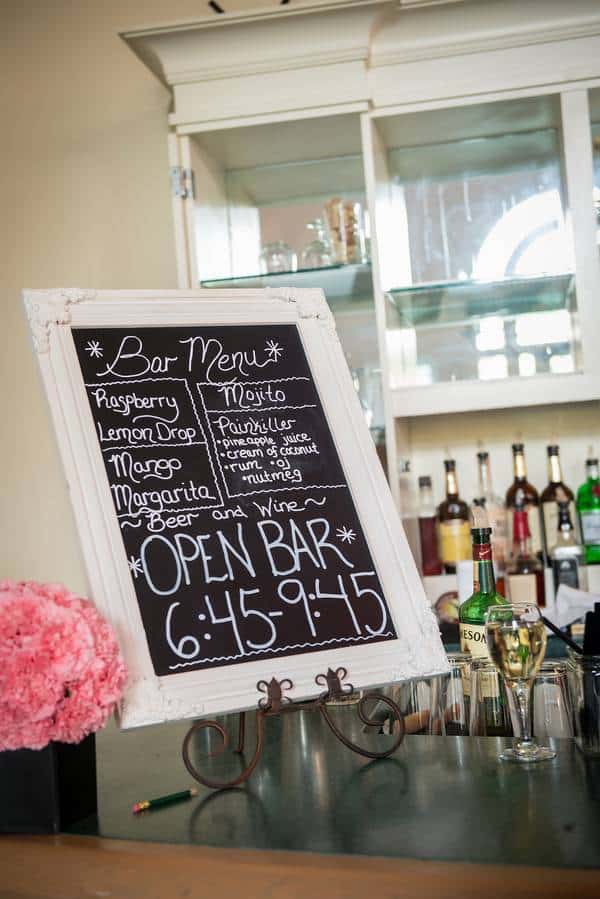 Bar Menu
Raspberry
Lemon Drop
Mango
Margarita
Mojito
Painkiller
• pineapple juice
• cream of coconut
• rum • oj
• nutmeg
~ Beer and Wine ~
OPEN BAR
6:45-9:45
MESON